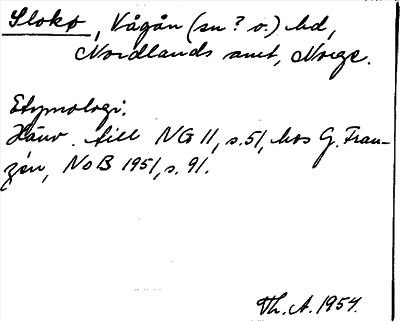 Slokø, Vågån (sn? o.) hd,
Nordlands amt, Norge.
Etymologi:
Hänv. till NG 11, s. 51, hos G. Fran-
zén, NoB 1951, s. 91.
Th. A. 1954.